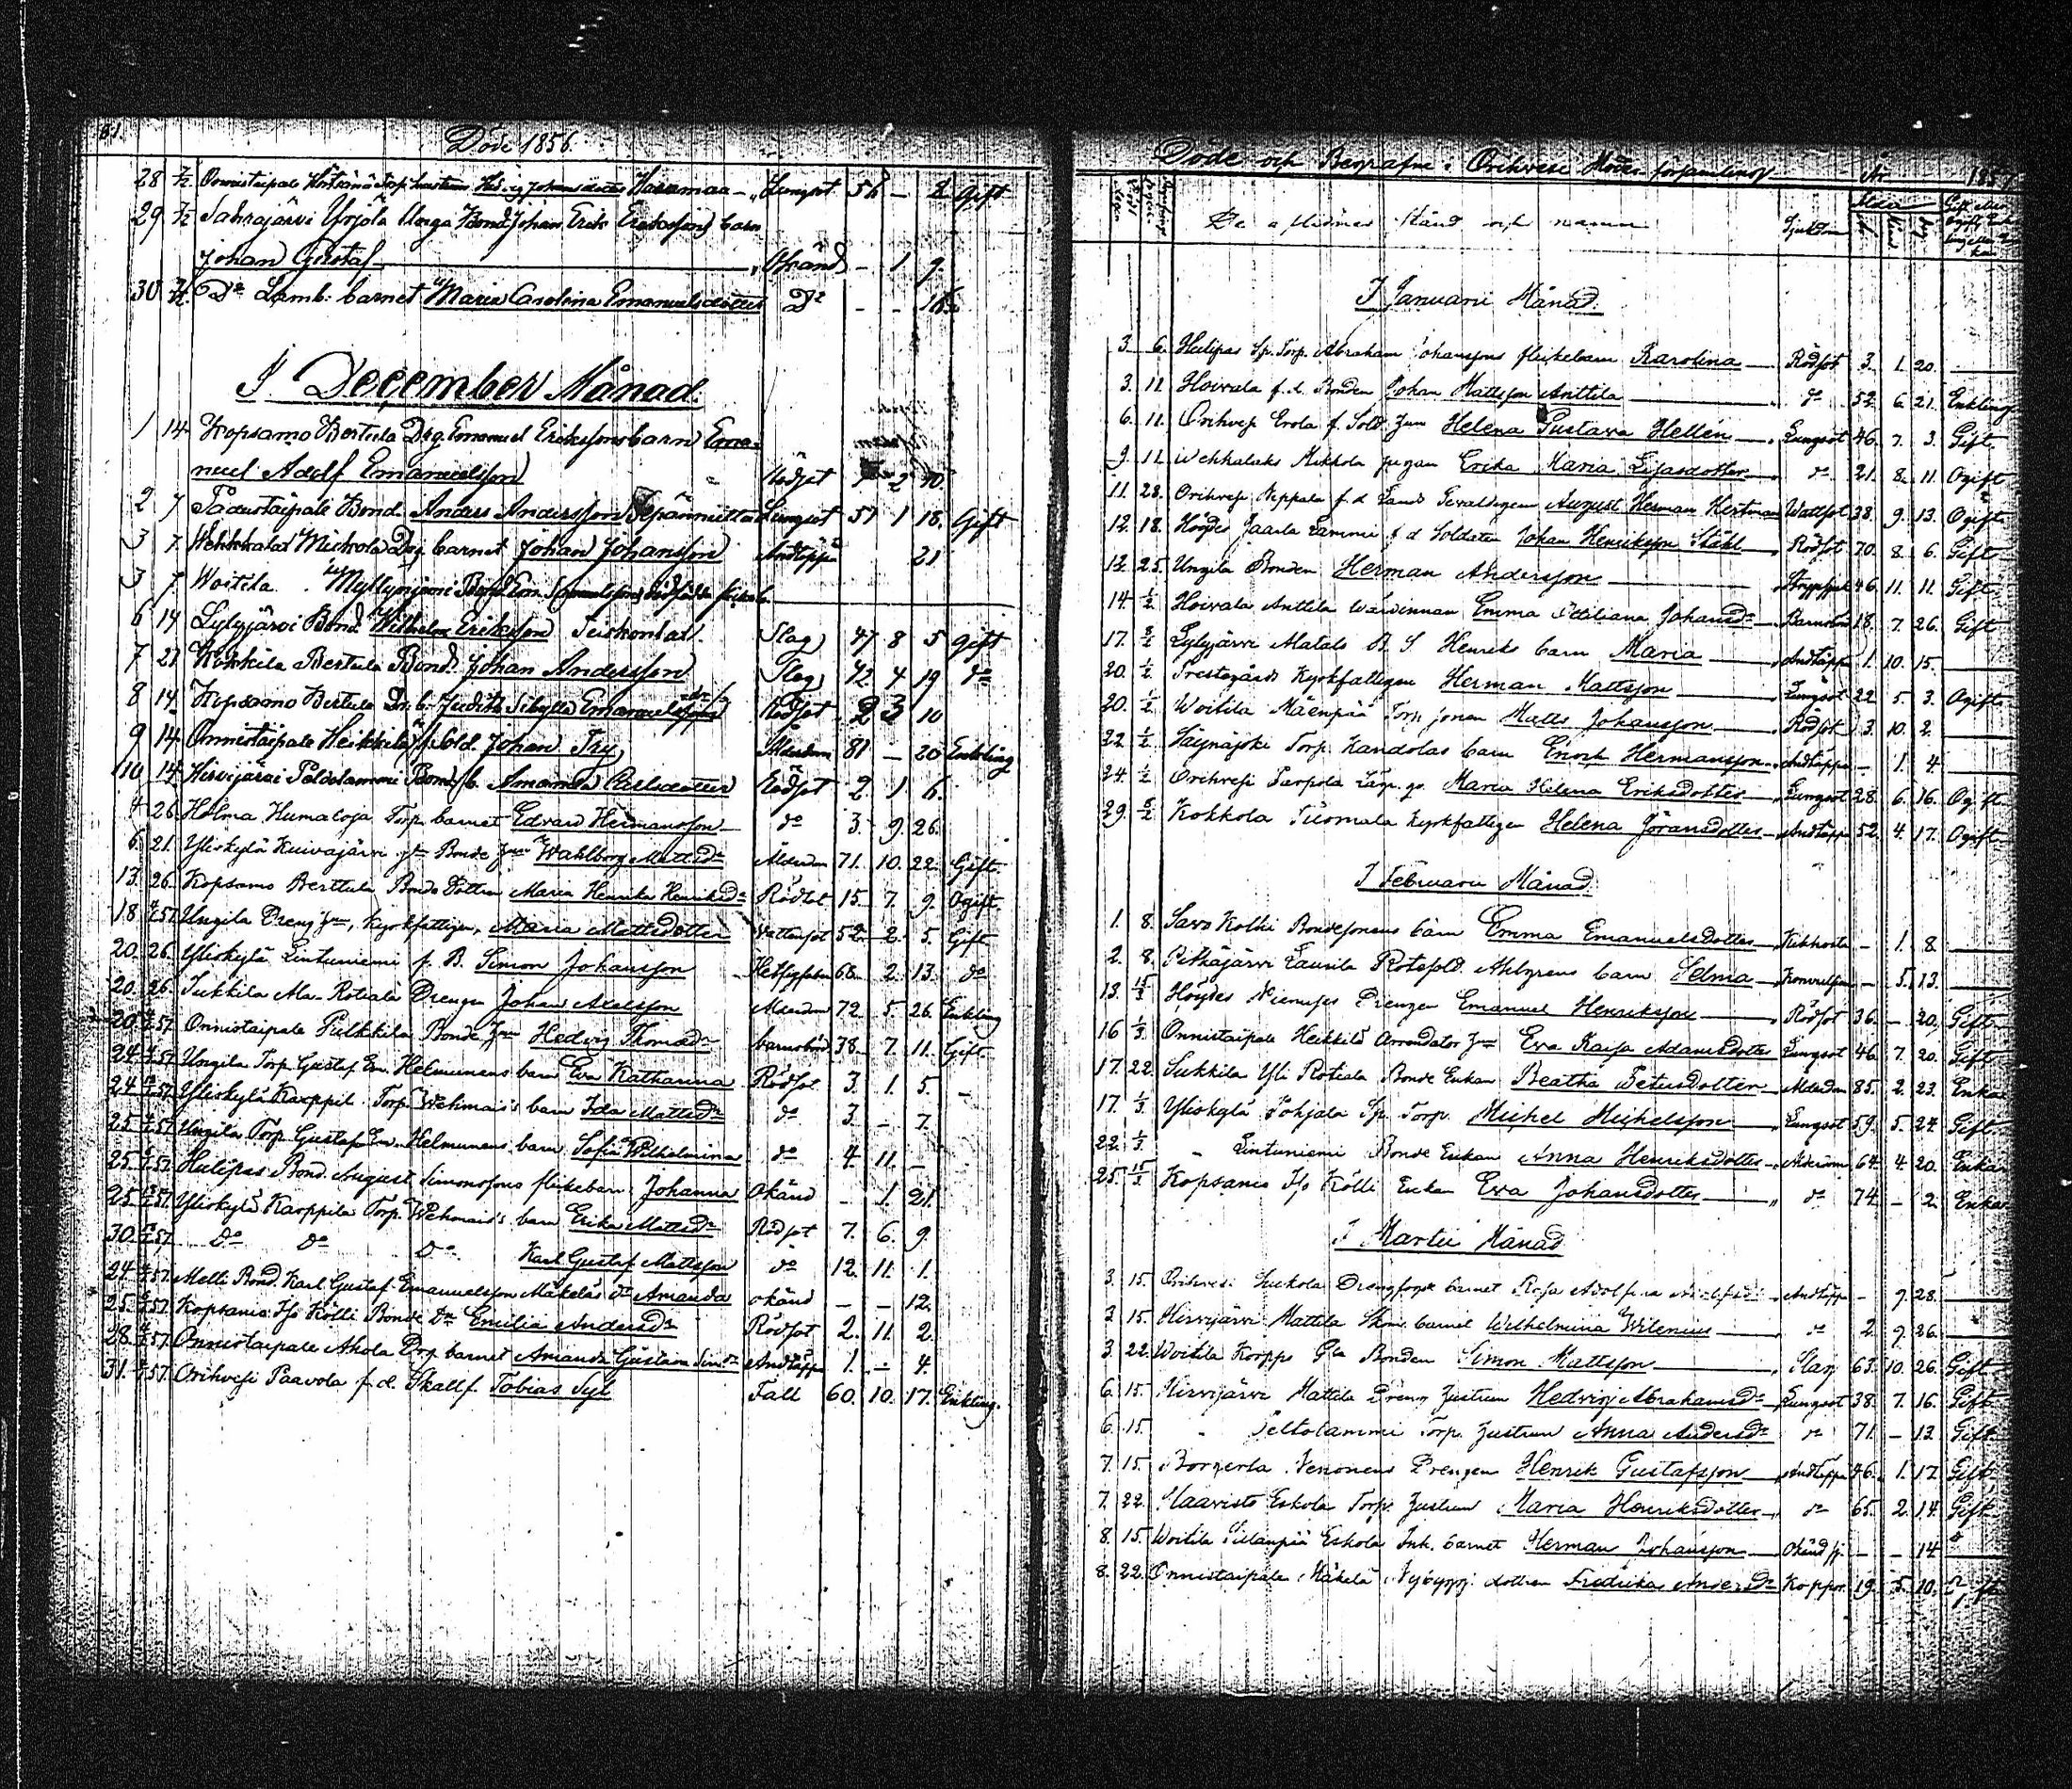 61.
Döde 1856.
28 Onnistaipale Torp. hustrun Hedvig Johansdotter Haramaa Lungsot 56 – 8 Gift
29 Sahrajärvi Yrjölä Unga Bond Johan Erik Erikssons barn
Johan Gustaf Okänd – 1 9.
30 Do Lamb. barnet Maria Carolina Emanuelsdotter Do – – 16.
I December Månad.
1 14 Kopsamo Bertula Drg. Emanuel Erikssons barn Ema-
nuel Adolf Emanuelsson Rödsot 2 10.
2 7 Pädustaipale Bond. Anders Andersson Lungsot 57 1 18. Gift
3 7 Wehkalax Mickola Drg barnet Johan Johansson Andtäppa 21
3 7 Woitila Myllynjärvi Bond
6 14 Lylyjärvi Bond. Wilhelm Eriksson Slag 47 8 5 Gift
7 21 Kokkila Bertula Bond. Johan Andersson Slag 42 4 19 do
8 14 Kopsamo Bertula Dr. b. Judith Sibylla Rödsot 2 3 10
9 14 Onnistaipale Heikkilä f. Sold. Johan Fry Ålderdom 81 – 20 Enkling
10 14 Hirvijärvi Peldolammi Bond. b. Amanda Carlsdotter Rödsot 2 1 6.
4 26. Holma Humaloja Torp. barnet Edvard Hermansson do 3. 9. 26.
6. 21. Yliskylä Kuivajärvi Bonde Wahlborg Mattsdr Ålderdom 71. 10. 22. Gift.
13. 26. Kopsamo Berttula Bonde Dottren Maria Henrika Henriksdr Rödsot 15. 7. 9. Ogift.
18. Ungila Dreng, Kyrkfattigen, Maria Mattsdotter Wattusot 52. 2. 5. Gift
20. 26. Yliskylä Lintuniemi f. B. Simon Johansson 68. 2. 13. do
20. 26. Sukkila Ala-Rotiala Drengen Johan Axelsson Ålderdom 72. 5. 26. Enkling
20. Onnistaipale Pulkkila Bonde Hedvig Thomasdr barnsbörd 38. 7. 11. Gift
24. Ungila Torp. Gustaf Em. Helmunens barn Eva Katharina Rödsot 3. 1. 5. –
24. Yliskylä Karppil. Torp. Wehmais's barn Ida Mattsdr do 3. – 7.
25. Ungila Torp. Gustaf Em. Helmunens barn Sofia Wilhelmina do 4. 11. –
25. Hulipas Bond. August Simonssons flickebarn Johanna Okänd – 1. 21.
25. Yliskylä Karppila Torp. Wehmais's barn Erika Mattsdr Rödsot 7. 6. 9.
30. Do Do Do Karl Gustaf Mattsson do 12. 11. 1.
24. Melli Bond. Karl Gustaf Emanuelsson Mäkeläs Dr Amanda okänd – – 12.
25. Kopsamo Iso Kölli Bonde Dr Emilia Andersdr Rödsot 2. 11. 2.
28. Onnistaipale Ahola Drg barnet Amanda Gustava Andtäppa 1. – 4.
31. Orihvesi Paavola f. d. Skallf. Tobias Syl Fall 60. 10. 17. Enkling.
Döde och Begrafne i Orihvesi Moder församling År 1857
De aflidnes Stånd och namn Sjukdom Ålder
I Januarii Månad.
3. 6. Hulipas Sp. Torp. Abraham Johanssons flickebarn Karolina Rödsot 3. 1. 20.
3. 11. Hoivala f. d. Bonden Johan Mattsson Anttila do 52. 6. 21. Enkling
6. 11. Orihvesi Erola f. Sold. Helena Gustava Hellén Lungsot 46. 7. 3. Gift.
9. 11. Wehkalaks Mikkola pigan Erika Maria do 21. 8. 11. Ogift
11. 28. Orihvesi Neppala f. d. Lands Gevaldigern August Herman Hertman Wattsot 38. 9. 13. Ogift.
12. 18. Höydes Jaarla Lammi f d Soldaten Johan Henriksson Ståhl Rödsot 70. 8. 6. Gift
12. 25. Ungila Bonden Herman Andersson 46. 11. 11. Gift.
14. 1/2 Hoivala Anttila Wärdinnan Emma Ottiliana Johansdr Barnsbörd 18. 7. 26. Gift
17. Lylyjärvi Matala B. S. Henriks barn Maria Andtäppa 1. 10. 15.
20. 1/2 Prestegårds Kyrkfattigen Herman Mattsson Lungsot 22. 5. 3. Ogift
20. 1/2 Woitila Mäenpää Torp. sonen Matts Johansson Rödsot 3. 10. 2.
22. 1/2 Säynäjoki Torp. Kandolas barn Enock Hermansson Andtäppa – 1. 4.
24. 1/2 Orihvesi Parpola Maria Helena Eriksdotter Lungsot 28. 6. 16. Ogift
29. Kokkola Tuomala Kyrkfattigen Helena Göransdotter Andtäpp 52. 4. 17. Ogift
I Februarii Månad.
1. 8. Savo Kolhi Bondesonens barn Emma Emanuelsdotter Kikhosta – 1. 8.
2. 8. Pitkäjärvi Laurila Rotesold. Ahlgrens barn Selma Konvulsion – 5. 13.
13. 15/3 Höydes Niemispä Drengen Emanuel Henriksson Rödsot 36. – 20. Gift
16 1/3 Onnistaipale Heikkilä Arrendator Eva Kaisa Adamsdotter Lungsot 46. 7. 20. Gift
17. 22. Sukkila Yli Rotiala Bonde Enkan Beatha Petersdotter Ålderdom 85. 2. 23. Enka
17. 1/3 Yliskylä Pohjala Sp. Torp. Michel Michelsson Lungsot 59. 5. 24. Gift
22. 1/3 " Lintuniemi Bonde Enkan Anna Henriksdotter Ålderdom 64. 4. 20. Enka
25. 15/3 Kopsamo Iso Kölli Enkan Eva Johansdotter do 74. – 2. Enka
I Martii Månad
3. 15. Orihvesi Suckola barnet Rosa Adolfina Andtäppa – 9. 28.
3. 15. Hirvijärvi Mattila barnet Wilhelmina Wilenius do 2. 9. 26.
3. 22. Woitila Korppi Bonden Simon Mattsson Slag 63. 10. 26. Gift
6. 15. Hirvijärvi Mattila Dreng hustrun Hedvig Abrahamsdr Lungsot 38. 7. 16. Gift
6. 15. " Peltolammi Torp. hustrun Anna Andersdr do 71. – 13. Gift
7. 15. Drengen Henrik Gustafsson Andtäppa 46. 1. 17. Gift
7. 22. Haavisto Eskola Torp. hustrun Maria Henriksdotter do 65. 2. 14. Gift
8. 15. Woitila Sillanpää Eskola Inh. barnet Herman Johansson Okänd sj. – – 14
8. 22. Onnistaipale Mäkelä Nybygg. dottren Fredrika Andersdr Koppor 19. 5. 10.